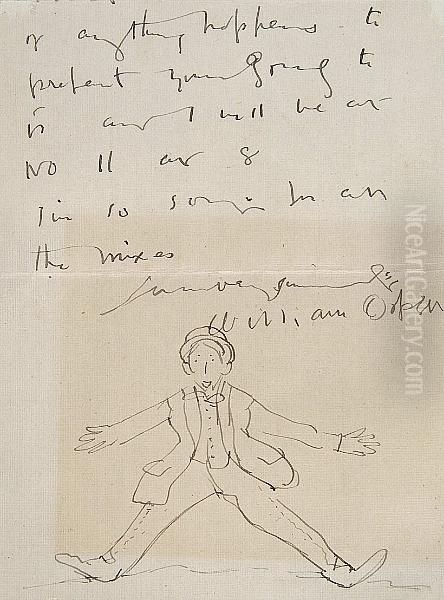 if anything happens to
prevent your going to
and I will be at
No 11 at 8
I'm so sorry for all
the mixes
Yours very sincerely
William Orpen
NiceArtGallery.com